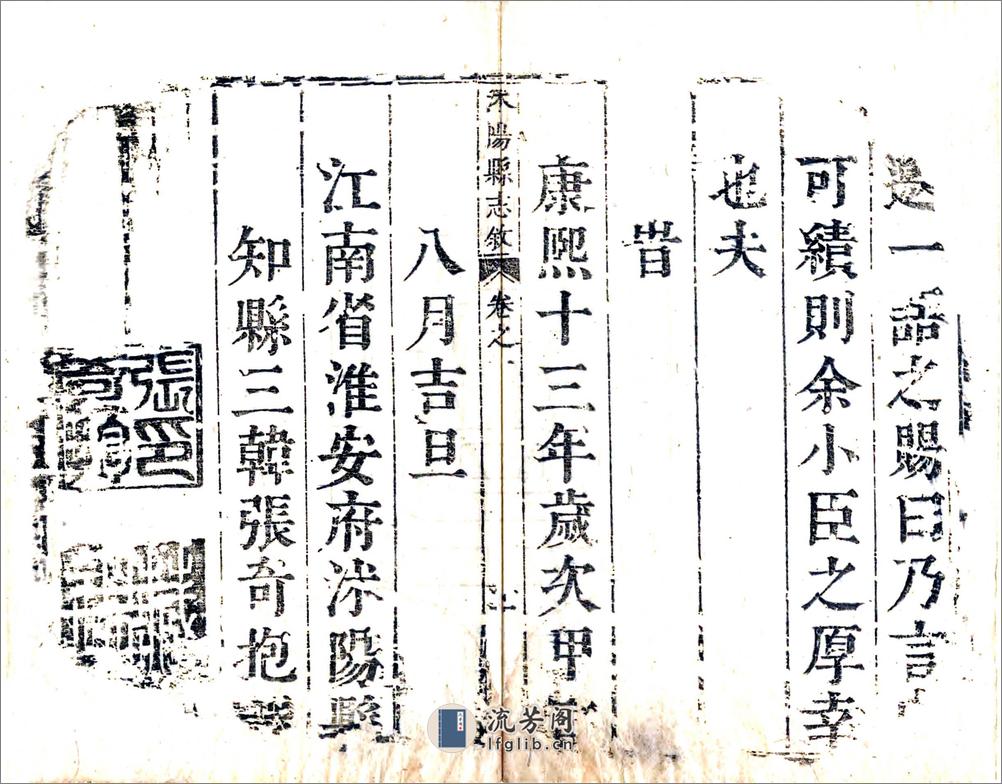 是一語之賜曰乃言
可績則余小臣之厚幸
也夫
旹
康熙十三年歲次甲寅
沭陽縣志敘 卷之一
八月吉旦
江南省淮安府沭陽縣
知縣三韓張奇抱
張奇抱印
流芳阁
lfglib.cn